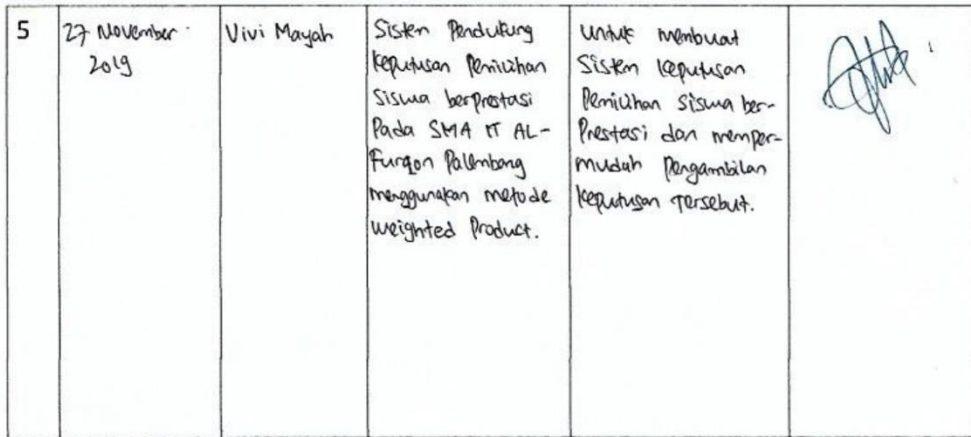 5
27 November
2019
Vivi Mayah
Sistem Pendukung
Keputusan Pemilihan
Siswa berprestasi
Pada SMA IT AL-
Furqon Palembang
menggunakan metode
weighted Product.
untuk membuat
Sistem keputusan
Pemilihan siswa ber-
Prestasi dan memper-
mudah Pengambilan
keputusan Tersebut.